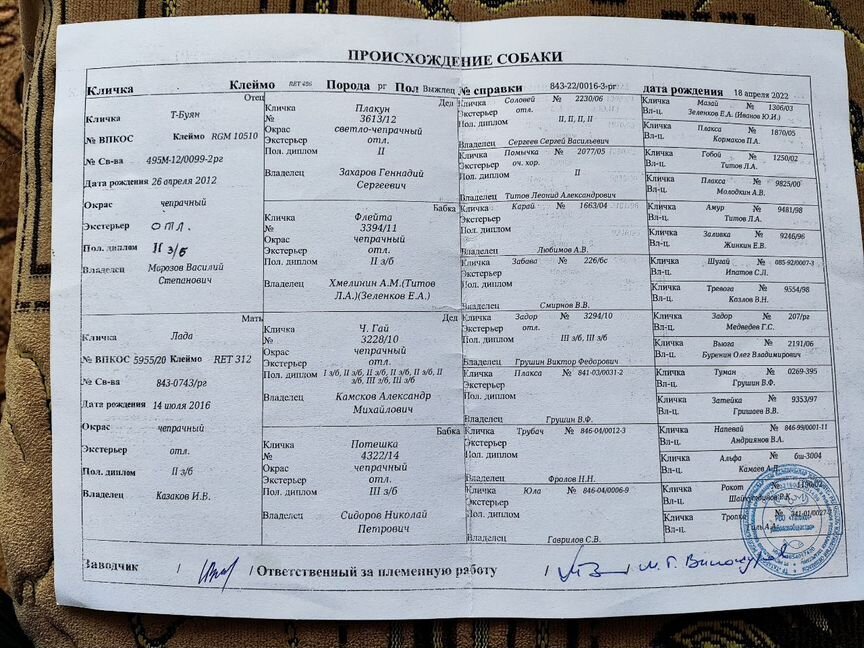 ПРОИСХОЖДЕНИЕ СОБАКИ
Кличка Клеймо RET 486 Порода рг Пол Выжлец № справки 843-22/0016-3-рг дата рождения 18 апреля 2022
Отец
Кличка Т-Буян
№ ВПКОС Клеймо RGM 10510
№ Св-ва 495М-12/0099-2рг
Дата рождения 26 апреля 2012
Окрас чепрачный
Экстерьер отл.
Пол. диплом II з/б
Владелец Морозов Василий
Степанович
Мать
Кличка Лада
№ ВПКОС 5955/20 Клеймо RET 312
№ Св-ва 843-0743/рг
Дата рождения 14 июля 2016
Окрас чепрачный
Экстерьер отл.
Пол. диплом II з/б
Владелец Казаков И.В.
Дед
Кличка Плакун
№ 3613/12
Окрас светло-чепрачный
Экстерьер отл.
Пол. диплом II
Владелец Захаров Геннадий
Сергеевич
Бабка
Кличка Флейта
№ 3394/11
Окрас чепрачный
Экстерьер отл.
Пол. диплом II з/б
Владелец Хмелинин А.М.(Титов
Л.А.)(Зеленков Е.А.)
Дед
Кличка Ч. Гай
№ 3228/10
Окрас чепрачный
Экстерьер отл.
Пол. диплом I з/б, II з/б, II з/б, II з/б, II з/б, II
з/б, III з/б, III з/б
Владелец Камсков Александр
Михайлович
Бабка
Кличка Потешка
№ 4322/14
Окрас чепрачный
Экстерьер отл.
Пол. диплом III з/б
Владелец Сидоров Николай
Петрович
Кличка Соловей № 2230/06
Экстерьер отл.
Пол. диплом II, II, II, II
Владелец Сергеев Сергей Васильевич
Кличка Помычка № 2077/05
Экстерьер оч. хор.
Пол. диплом II
Владелец Титов Леонид Александрович
Кличка Карай № 1663/04
Экстерьер
Пол. диплом
Владелец Любимов А.В.
Кличка Забава № 226/бс
Экстерьер
Пол. диплом
Владелец Смирнов В.В.
Кличка Задор № 3294/10
Экстерьер отл.
Пол. диплом III з/б, III з/б
Владелец Грушин Виктор Федорович
Кличка Плакса № 841-03/0031-2
Экстерьер
Пол. диплом
Владелец Грушин В.Ф.
Кличка Трубач № 846-04/0012-3
Экстерьер
Пол. диплом
Владелец Фролов Н.Н.
Кличка Юла № 846-04/0006-9
Экстерьер
Пол. диплом
Владелец Гаврилов С.В.
Кличка Мазай № 1306/03
Вл-ц. Зеленков Е.А. (Иванов Ю.И.)
Кличка Плакса № 1870/05
Вл-ц. Кормаков П.А.
Кличка Гобой № 1250/02
Вл-ц. Титов Л.А.
Кличка Плакса № 9825/00
Вл-ц. Молодкин А.В.
Кличка Амур № 9481/98
Вл-ц. Титов Л.А.
Кличка Заливка № 9246/96
Вл-ц. Жинкин Е.В.
Кличка Шугай № 085-92/0007-3
Вл-ц. Ипатов С.Л.
Кличка Тревога № 9554/98
Вл-ц. Козлов В.Н.
Кличка Задор № 207/рг
Вл-ц. Медведев Г.С.
Кличка Вьюга № 2191/06
Вл-ц. Буренин Олег Владимирович
Кличка Туман № 0269-395
Вл-ц. Грушин В.Ф.
Кличка Затейка № 9353/97
Вл-ц. Гришаев В.В.
Кличка Напевай № 846-99/0001-11
Вл-ц. Андриянов В.А.
Кличка Альфа № бш-3004
Вл-ц. Камаев А.П.
Кличка Рокот № 1190/02
Вл-ц.
Кличка Тропка № 341-01/0027-3
Вл-ц.
Заводчик / / Ответственный за племенную работу /